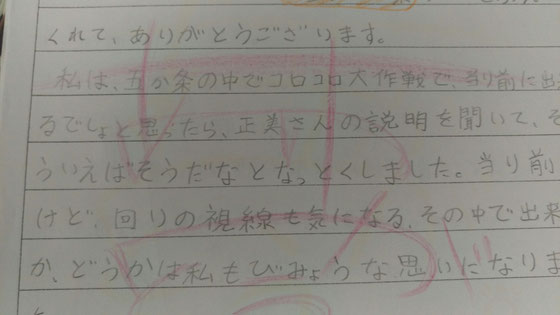 くれて、ありがとうございます。
私は、五か条の中でコロコロ大作戦で、当り前に出来
るでしょと思ったら、正美さんの説明を聞いて、そ
ういえばそうだなとなっとくしました。当り前
けど、回りの視線も気になる、その中で出来
か、どうかは私もびみょうな思いになりま